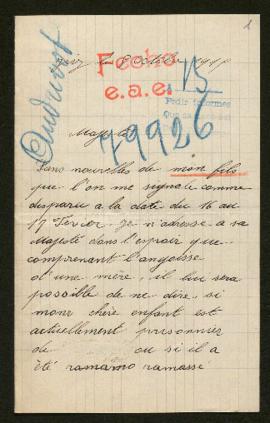 1
le 8 Octobre 191
Fecho
e.a.e.
15
Pedir informes
Que se
Andruvot
79926
Majesté
Sans nouvelles de mon fils
que l'on me signale comme
disparu a la date du 16 au
17 Fevier. Je m'adresse a sa
Majesté dans l'espoir que
comprenant l'angoisse
d'une mère, il lui sera
possible de me dire, si
mons chère enfant est
actuellement prisonnier
de ou si il a
été ramamo ramassé